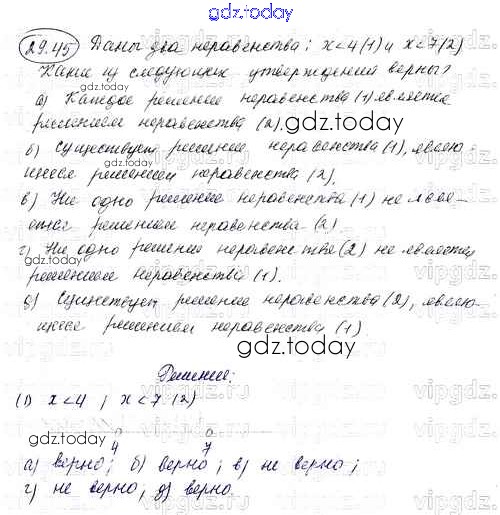 gdz.today
29.45 Даны два неравенства: x<4 (1) и x<7 (2)
Какие из следующих утверждений верны?
а) Каждое решение неравенства (1) является
решением неравенства (2).
gdz.today
б) Существует решение неравенства (1), являю-
щееся решением неравенства (2).
gdz.today
в) Ни одно решение неравенства (1) не явля-
ется решением неравенства (2).
г) Ни одно решение неравенства (2) не является
gdz.today
решением неравенства (1).
д) Существует решение неравенства (2), являю-
щееся решением неравенства (1)
gdz.today
Решение:
(1) x<4 ; x<7 (2)
gdz.today
4 7
а) верно; б) верно; в) не верно;
г) не верно; д) верно